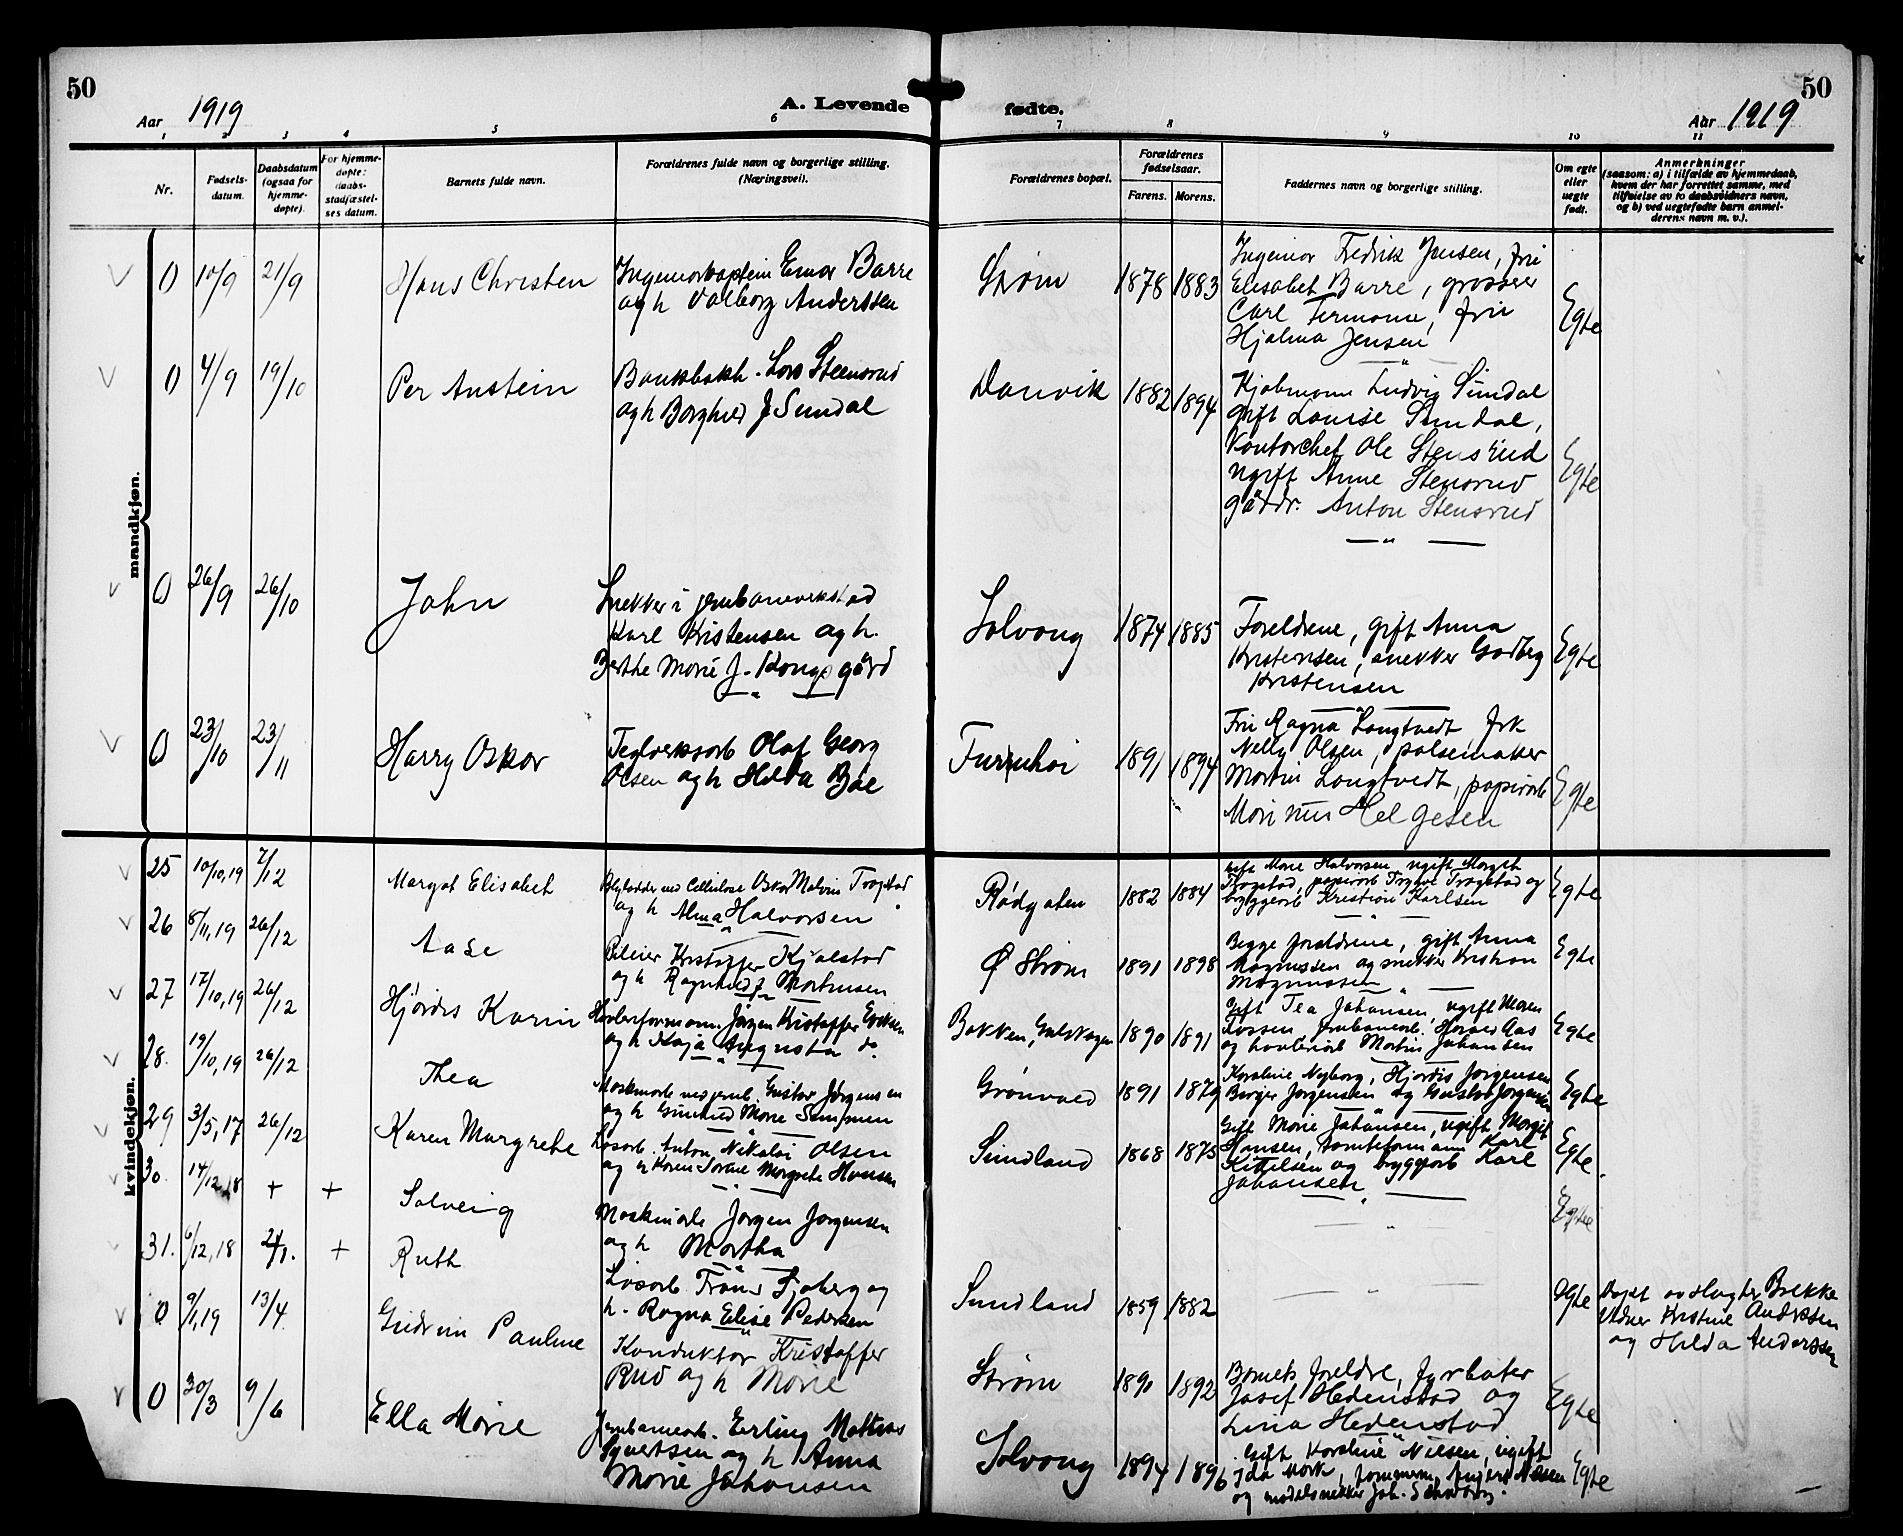 50
Aar 1919
A. Levende
1 2 3 4 5 6
Nr.
Fødsels-
datum.
Daabsdatum
(ogsaa for
hjemme-
døpte).
For hjemme-
døpte:
daabs-
stadfæstel-
ses datum.
Barnets fulde navn.
Forældrenes fulde navn og borgerlige stilling.
(Næringsvei).
mandkjøn.
0 10/9 21/9 Hans Christen
Barre
og h Valborg Anderssen
0 4/9 19/10 Per Anstein
Stensrud
og h Borghild J Sundal
0 26/9 26/10 John
Snekker i jernbaneverksted
Karl Kristensen og h.
Berthe Marie J. Kongsgård
0 23/10 23/11 Harry Oskar
Olaf Georg
Olsen og h Hilda Bøe
kvindekjøn.
25 10/10,19 7/12 Margot Elisabet
Oskar Malvin Trogstad
og h Alma Halvorsen
26 8/11,19 26/12 Aase
Kristoffer Kjølstad
og h Ragnhild Martinsen
27 17/10,19 26/12 Hjørdis Karin
Jørgen Kristoffer Eriksen
og h Kaja Augusta do.
28. 19/10,19 26/12 Thea
Gustav Jørgensen
og h Gunhild Marie Simonsen
29 3/5,17 26/12 Karen Margrethe
Løsarb. Anton Nikolai Olsen
og h Karen Margrete Hansen
30. 14/12,18 + + Solveig
Maskinarb Jørgen Jørgensen
og h Martha
31. 6/12,18 + Ruth
Løsarb Frans Sjøberg og
h. Ragna Elise Pedersen
0 9/1,19 13/4 Gudrun Pauline
Konduktør Kristoffer
Rud og h Marie
0 30/3 9/6 Ella Marie
Jernbanearb. Erling Mathias
Syvertsen og h Anna
Marie Johansen
50
fødte.
Aar 1919
7 8 9 10 11
Forældrenes bopæl.
Forældrenes
fødselsaar.
Farens. Morens.
Faddernes navn og borgerlige stilling.
Om egte
eller
uegte
født.
Anmerkninger
(saasom: a) i tilfælde av hjemmedaab,
hvem der har forrettet samme, med
tilføielse av to daabsvidners navn,
og b) ved uegtefødte barn anmel-
derens navn m. v.).
Strøm 1878 1883
Ingeniør Fredrik Jensen, frue
Elisabet Barre, grosserer
Carl
Hjalma Jensen
Egte
Danvik 1882 1894
Kjøbmann Ludvig Sundal
gift Louise Sundal,
Kontorchef Ole Stensrud
ugift Anne Stensrud
gårdr. Anton Stensrud
Egte
Solvang 1874 1885
Foreldrene, gift Anna
Kristensen, snekker Godberg
Kristensen
Egte
Furuhøi 1891 1894
Fru Ragna Langtvedt, frk
Nelly Olsen, pølsemaker
Martin Langtvedt, papirarb
Marinius Helgesen
Egte
Rødgaten 1882 1884
Gift Marie Halvorsen, ugift Margit
Trogstad, papirarb Trygve Trogstad og
bryggearb Kristian Karlsen
Egte
Ø Strøm 1891 1898
Begge foreldrene, gift Anna
Magnussen og snekker Kristian
Magnussen
Egte
Bakken, 1890 1891
Gift Tea Johansen, ugift Maren
Aas
og Martin Johansen
Egte
Grønvold 1891 1879
Karoline Nyborg, Hjørdis Jørgensen
Birger Jørgensen og Gustav Jørgensen
Egte
Sundland 1868 1875
Gift Marie Johansen, ugift Margit
Hansen, tomteformann Karl
Kittelsen og bryggearb Karl
Johansen
Egte.
Egte
Sundland 1859 1882
Egte
Døpt av Brekke
Vidner Kristine Andersen
og Hilda Anderssen
Strøm 1890 1892
Barnets foreldre, fyrbøter
Josef Hedenstad og
Lina Hedenstad
Egte
Solvang 1894 1896
Gift Karoline Nilsen, ugift
Ida Mork, Nilsen
og modelsnekker Joh.
Egte